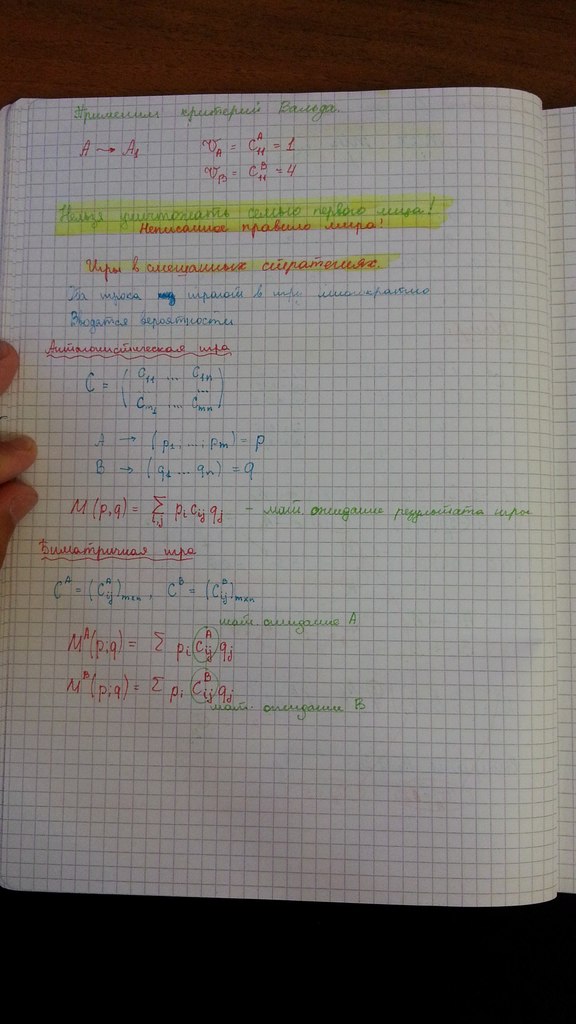 Применим критерий Вальда.
A → A₁ V_A = C₁₁^A = 1
V_B = C₁₁^B = 4
Нельзя уничтожать семью первого мира!
Неписанное правило мира!
Игры в смешанных стратегиях.
Два игрока играют в игру многократно
Вводятся вероятности
Антагонистическая игра
C = ( C₁₁ ... C₁ₙ
...
Cₘ₁ ... Cₘₙ )
A → (p₁, ..., pₘ) = p
B → (q₁ ... qₙ) = q
M(p,q) = Σ_{i,j} pᵢ cᵢⱼ qⱼ - мат. ожидание результата игры
Биматричная игра
C^A = (C_{ij}^A)_{m×n}, C^B = (C_{ij}^B)_{m×n}
мат. ожидание A
M^A(p;q) = Σ pᵢ C_{ij}^A qⱼ
M^B(p;q) = Σ pᵢ C_{ij}^B qⱼ
мат. ожидание B